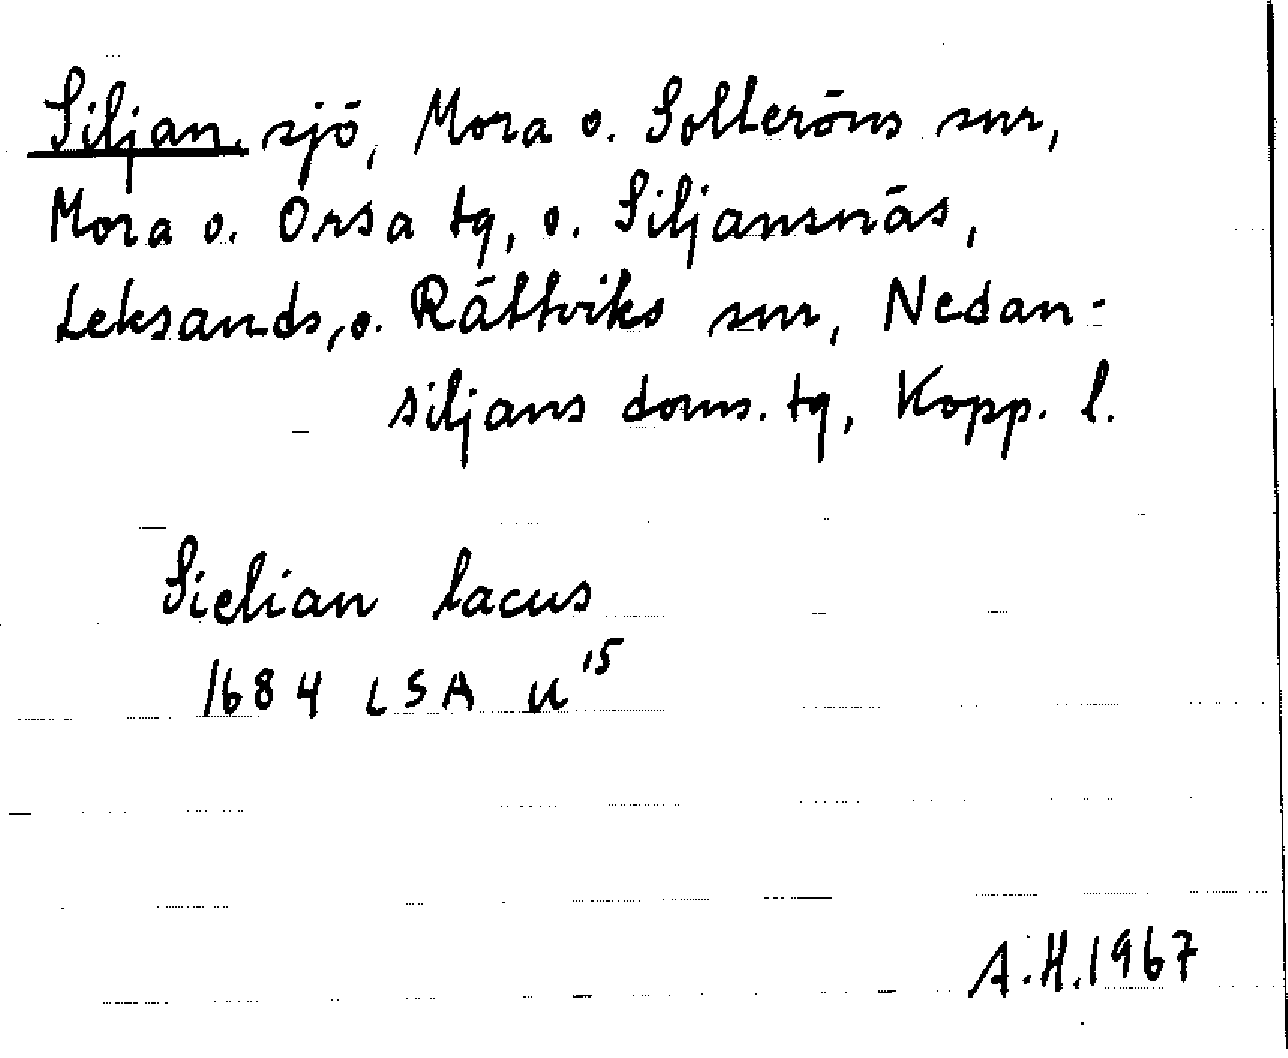 Siljan, sjö, Mora o. Solleröns snr,
Mora o. Orsa tg, o. Siljansnäs,
Leksands, o. Rättviks snr, Nedan-
siljans doms. tg, Kopp. l.
Sielian lacus
1684 LSA u 15
A.H.1967